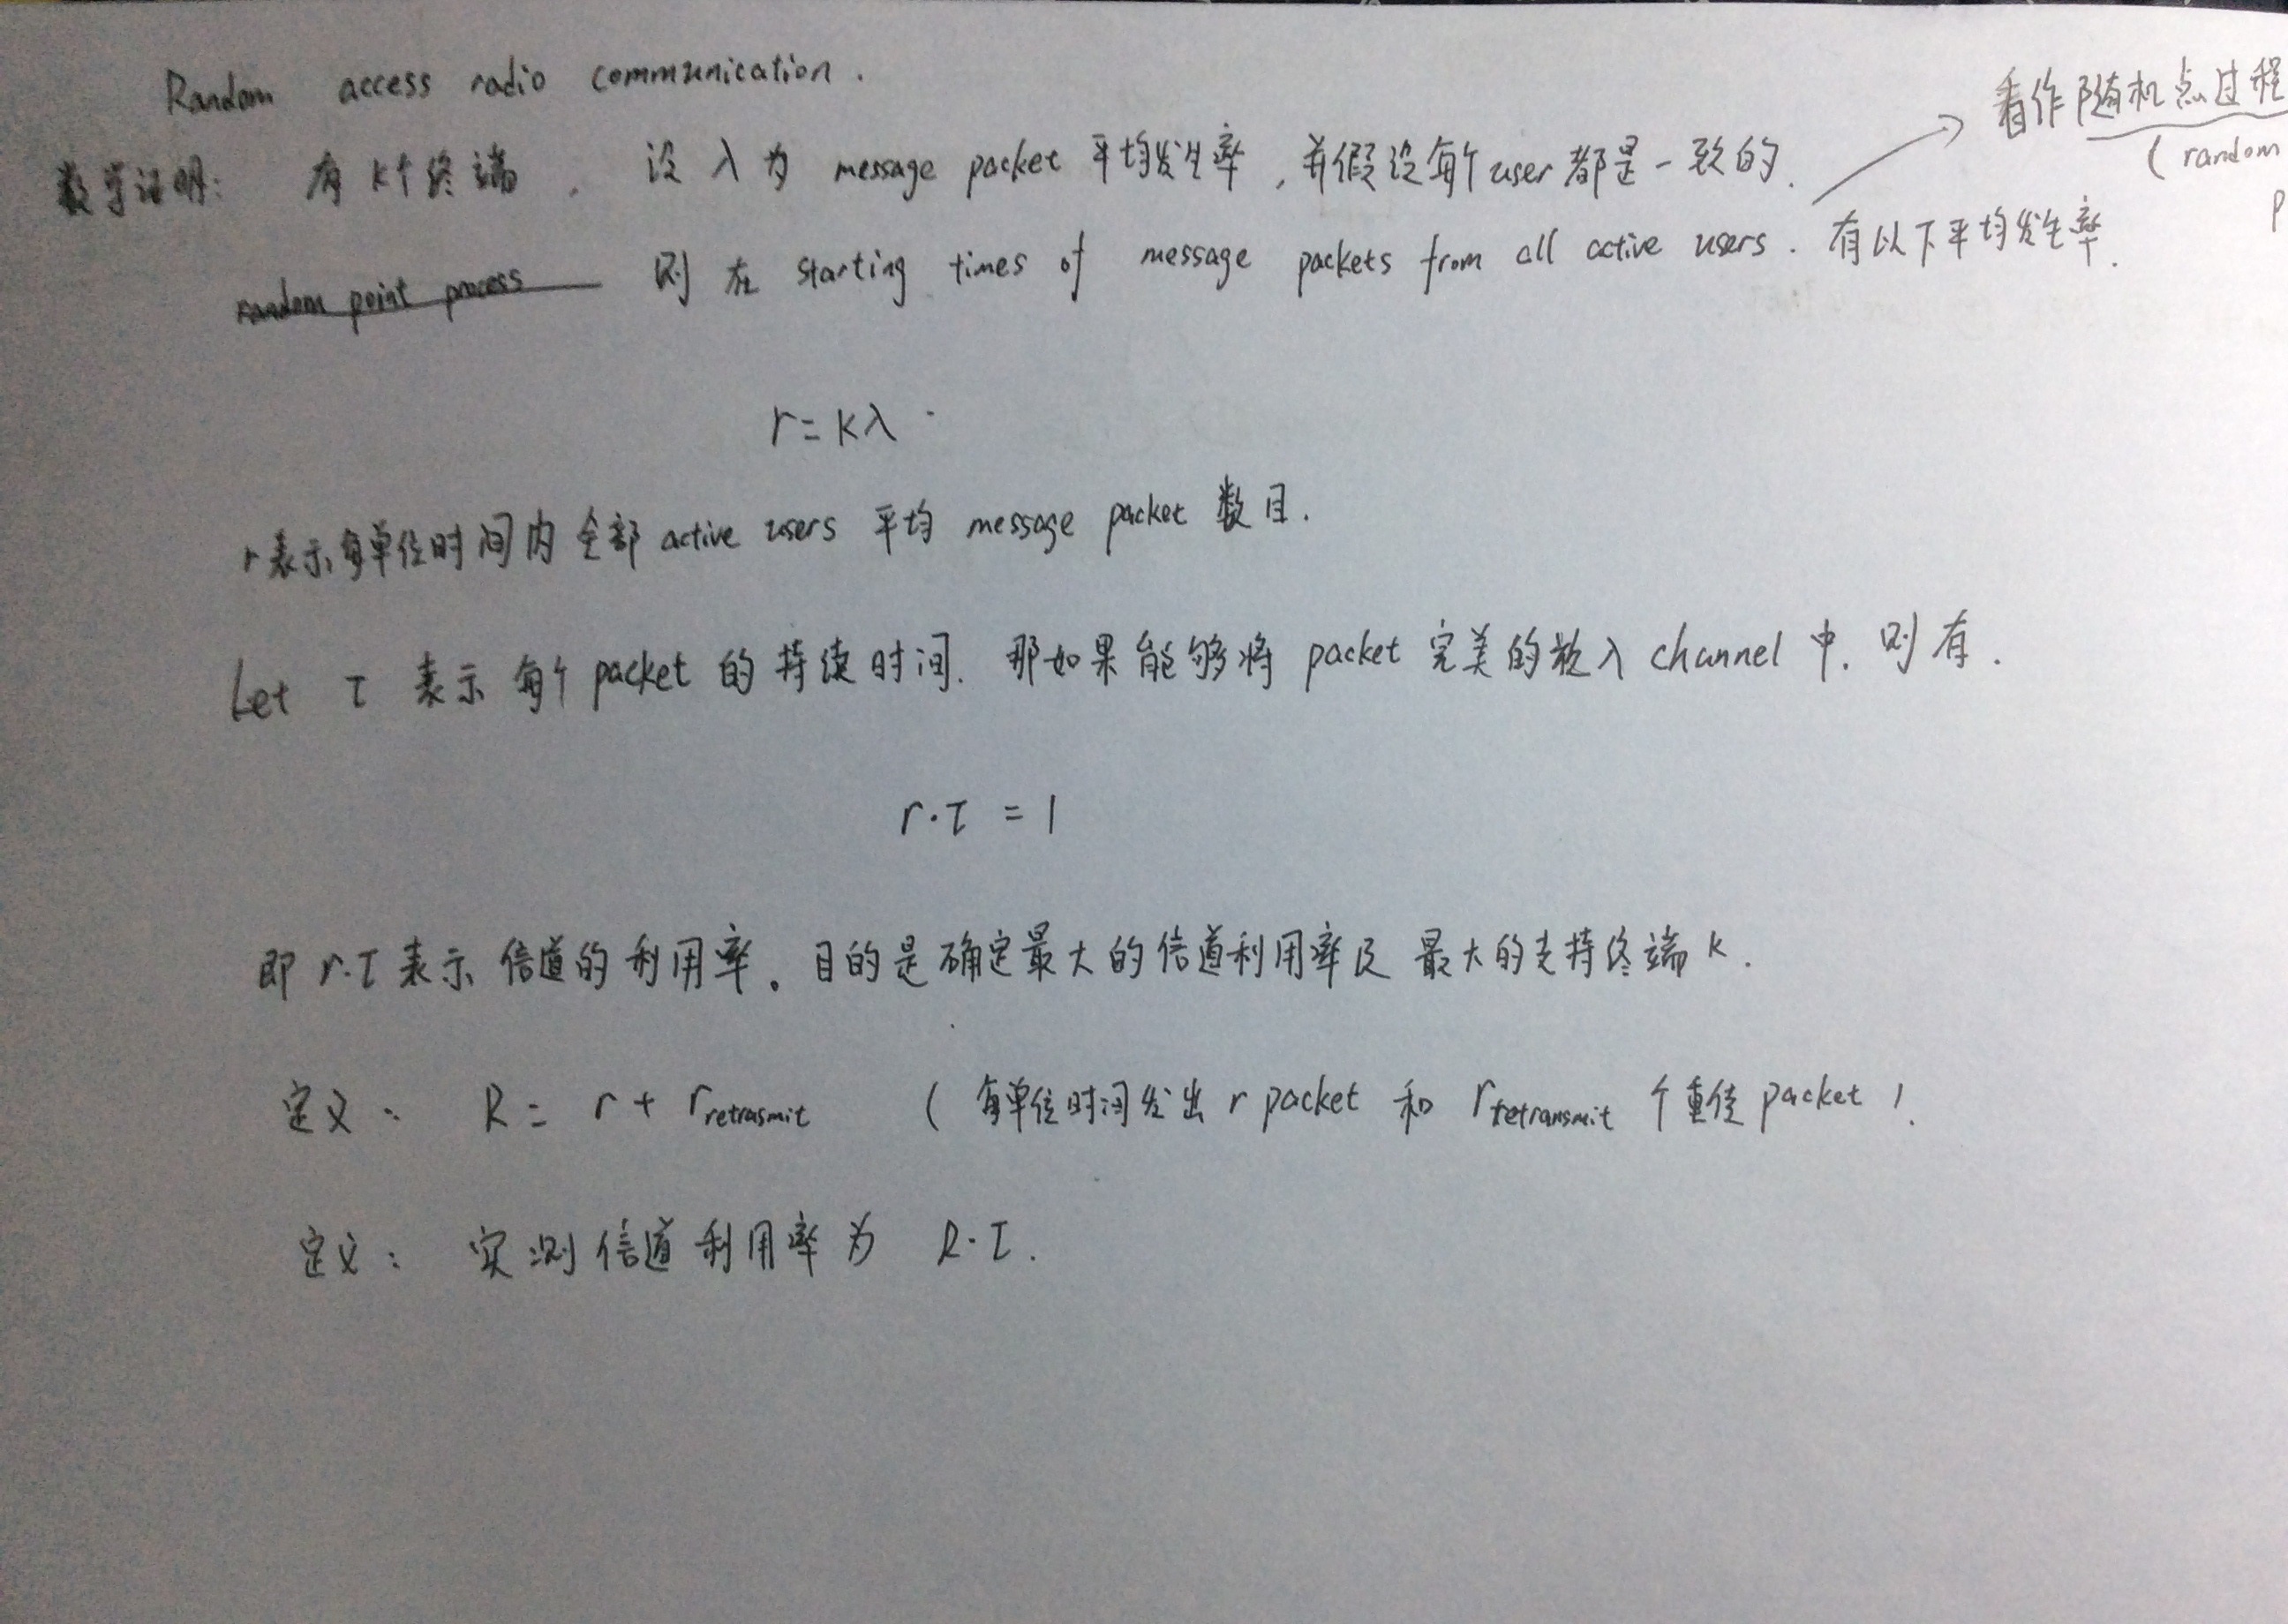 Random access radio communication.
看作随机点过程
(random
p
数学证明: 有 k个终端, 设 λ 为 message packet 平均发生率, 并假设每个user都是一致的.
random point process 则 在 starting times of message packets from all active users. 有以下平均发生率.
r = kλ.
r表示每单位时间内全部 active users 平均 message packet 数目.
Let τ 表示 每个 packet 的持续时间. 那如果能够将 packet 完美的放入 channel 中. 则有.
r·τ = 1
即 r·τ 表示 信道的利用率。目的是确定最大的信道利用率及 最大的支持终端 k.
定义: R = r + r retrasmit (每单位时间发出 r packet 和 r retransmit 个重传 packet ).
定义: 实测信道利用率为 R·τ.